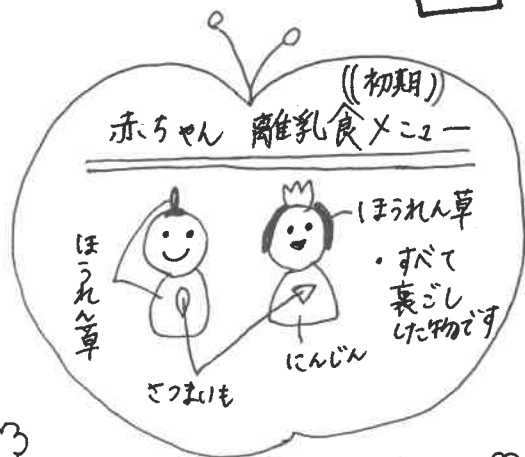 ((初期))
赤ちゃん 離乳食メニュー
ほうれん草
ほうれん草
・すべて
裏ごし
した物です
にんじん
さつまいも
3